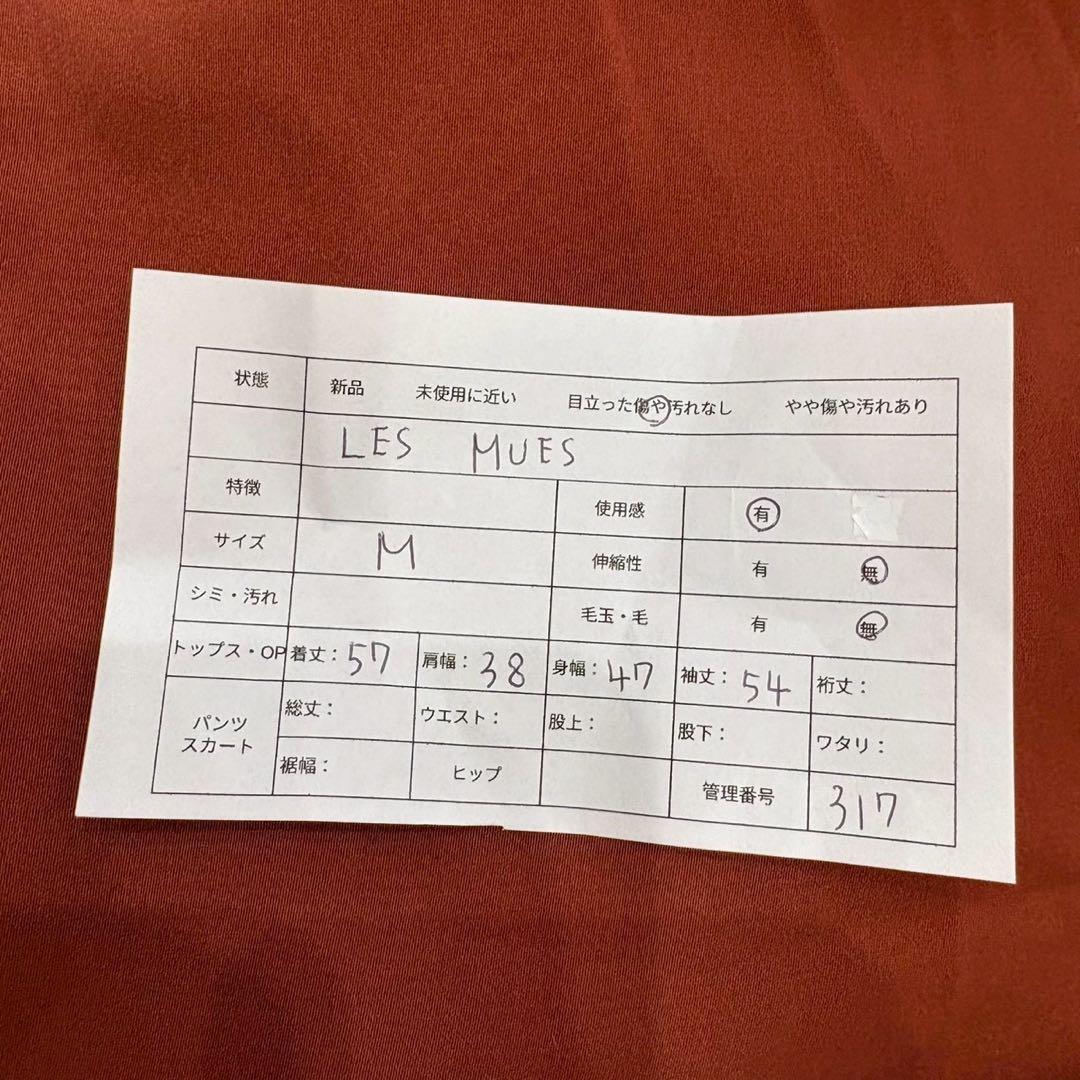 状態 新品 未使用に近い 目立った傷や汚れなし やや傷や汚れあり
LES MUES
特徴 使用感 有
サイズ M 伸縮性 有 無
シミ・汚れ 毛玉・毛 有 無
トップス・OP 着丈：57 肩幅：38 身幅：47 袖丈：54 裄丈：
パンツ
スカート
総丈： ウエスト： 股上： 股下： ワタリ：
裾幅： ヒップ 管理番号 317